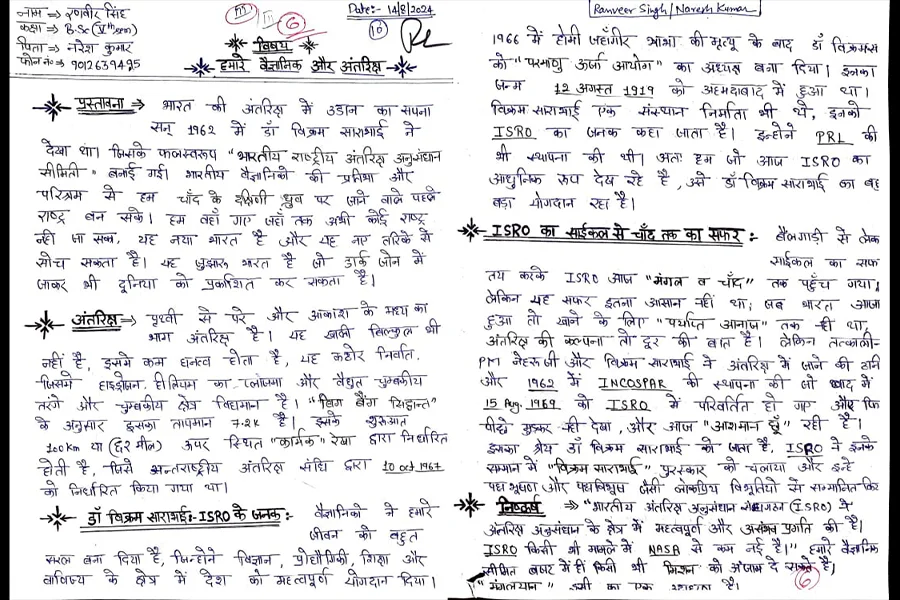 नाम => रणवीर सिंह
कक्षा => B.Sc (Vth sem)
पिता => नरेश कुमार
फोन नं० => 9012639495
III
6
Date:- 14/8/2024
10
विषय
हमारे वैज्ञानिक और अंतरिक्ष
प्रस्तावना => भारत की अंतरिक्ष में उडान का सपना
सन् 1962 में डॉ विक्रम साराभाई ने
देखा था। जिसके फलस्वरूप "भारतीय राष्ट्रीय अंतरिक्ष अनुसंधान
समिति" बनाई गई। भारतीय वैज्ञानिकों की प्रतिभा और
परिश्रम से हम चाँद के दक्षिणी ध्रुव पर जाने वाले पहले
राष्ट्र बन सके। हम वहाँ गए जहाँ तक अभी कोई राष्ट्र
नही जा सका, यह नया भारत है और यह नए तरिके से
सोच सकता है। यह जुझारू भारत है जो डार्क जोन में
जाकर भी दुनिया को प्रकाशित कर सकता है।
अंतरिक्ष => पृथ्वी से परे और आकाश के मध्य का
भाग अंतरिक्ष है। यह खाली बिल्कुल भी
नहीं है, इसमे कम घनत्व होता है, यह कठोर निर्वात,
जिसमे हाइड्रोजन, हीलियम का प्लाज्मा और वैद्युत चुम्बकीय
तरंगे और चुम्बकीय क्षेत्र विद्यमान है। "बिग बैंग सिद्वान्त"
के अनुसार इसका तापमान 7.2K है। इसके शुरूआत
100km या (62 मील) ऊपर स्थित "कार्मिक" रेखा द्वारा निर्धारित
होती है, जिसे अन्तराष्ट्रीय अंतरिक्ष संधि द्वारा 10 oct 1967
को निर्धारित किया गया था।
डॉ विक्रम साराभाई:- ISRO के जनक:- वैज्ञानिको ने हमारे
जीवन को बहुत
सरल बना दिया है, जिन्होने विज्ञान, प्रौद्योगिकी, शिक्षा और
वाणिज्य के क्षेत्र में देश को महत्वपूर्ण योगदान दिया।
Ranveer Singh / Naresh Kumar
1966 में होमी जहाँगीर भाभा की मृत्यू के बाद डॉ विक्रमस
को "परमाणु ऊर्जा आयोग" का अध्यक्ष बना दिया। इनका
जन्म 12 अगस्त 1919 को अहमदाबाद में हुआ था।
विक्रम साराभाई एक संस्थान निर्माता भी थे, इनको
ISRO का जनक कहा जाता है। इन्होने PRL की
भी स्थापना की थी। अतः हम जो आज ISRO का
आधुनिक रूप देख रहे है, उसे डॉ विक्रम साराभाई का बहु
बड़ा योगदान रहा है।
ISRO का साईकल से चाँद तक का सफर :- बैलगाडी से लेक
साईकल का सफ
तय करके ISRO आज "मंगल व चाँद" तक पहुँच गया,
लेकिन यह सफर इतना आसान नहीं था; जब भारत आजा
हुआ तो खाने के लिए "पर्याप्त आनाज" तक ही था,
अंतरिक्ष की कल्पना तो दूर की बात है। लेकिन तत्काली-
PM नेहरू जी और विक्रम साराभाई ने अंतरिक्ष में जाने की ठानी
और 1962 में INCOSPAR की स्थापना की जो बाद में
15 Aug. 1969 को ISRO में परिवर्तित हो गए और फि
पीछे मुड़कर नही देखा, और आज "आशमान छूँ" रही है।
इसका श्रेय डॉ विक्रम साराभाई को जाता है, ISRO ने इनके
सम्मान में "विक्रम साराभाई" पुरस्कार को चलाया और इन्हे
पद्म भूषण और पद्मविभूष जैसी लोकप्रिय विभूतियों से सम्मानित कि
निष्कर्ष => "भारतीय अंतरिक्ष अनुसंधान संगठन (ISRO) ने
अंतरिक्ष अनुसंधान के क्षेत्र में महत्वपूर्ण और असंभव प्रगति की है।
ISRO किसी भी मामले में NASA से कम नही है।" हमारे वैज्ञानिक
सीमित बजट में ही किसी भी मिशन को अंजाम दे सकते है।
"मंगलयान" का एक है।
6